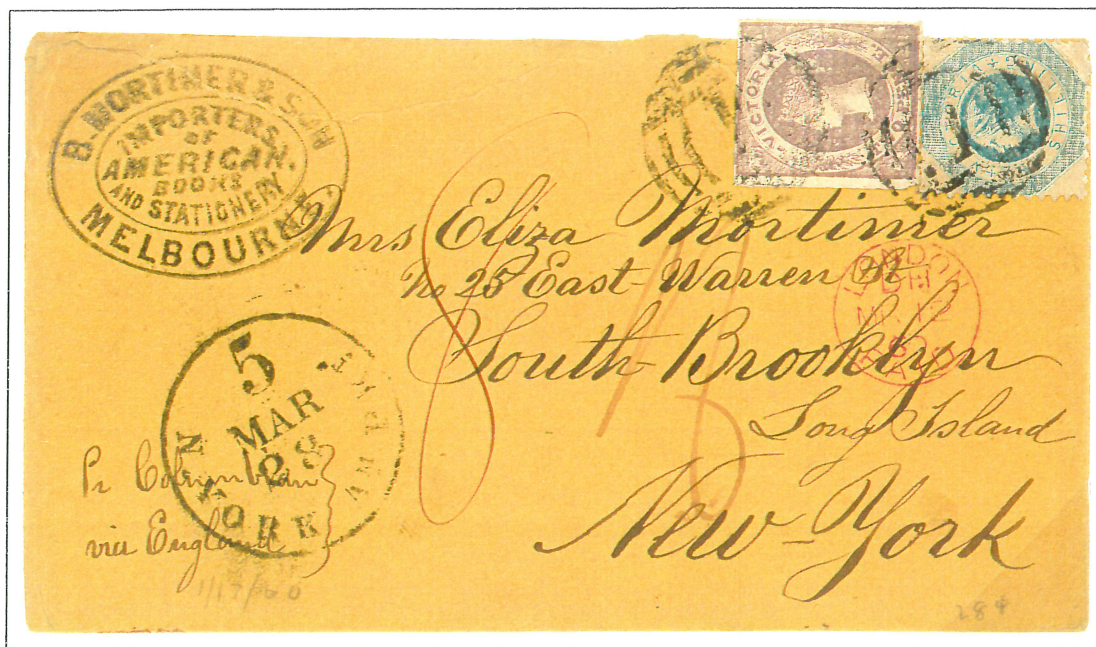 B. MORTIMER & SON
IMPORTERS
OF
AMERICAN.
BOOKS
AND STATIONERY
MELBOURNE
VICTORIA
VICTORIA
SHILLING
Mrs Eliza Mortimer
No 25 East-Warren St
South-Brooklyn
Long Island
New-York
LONDON
MR 12
PAID
5
MAR
28
N YORK AM PKT
Pr Columbian
via England
1/17/60
284